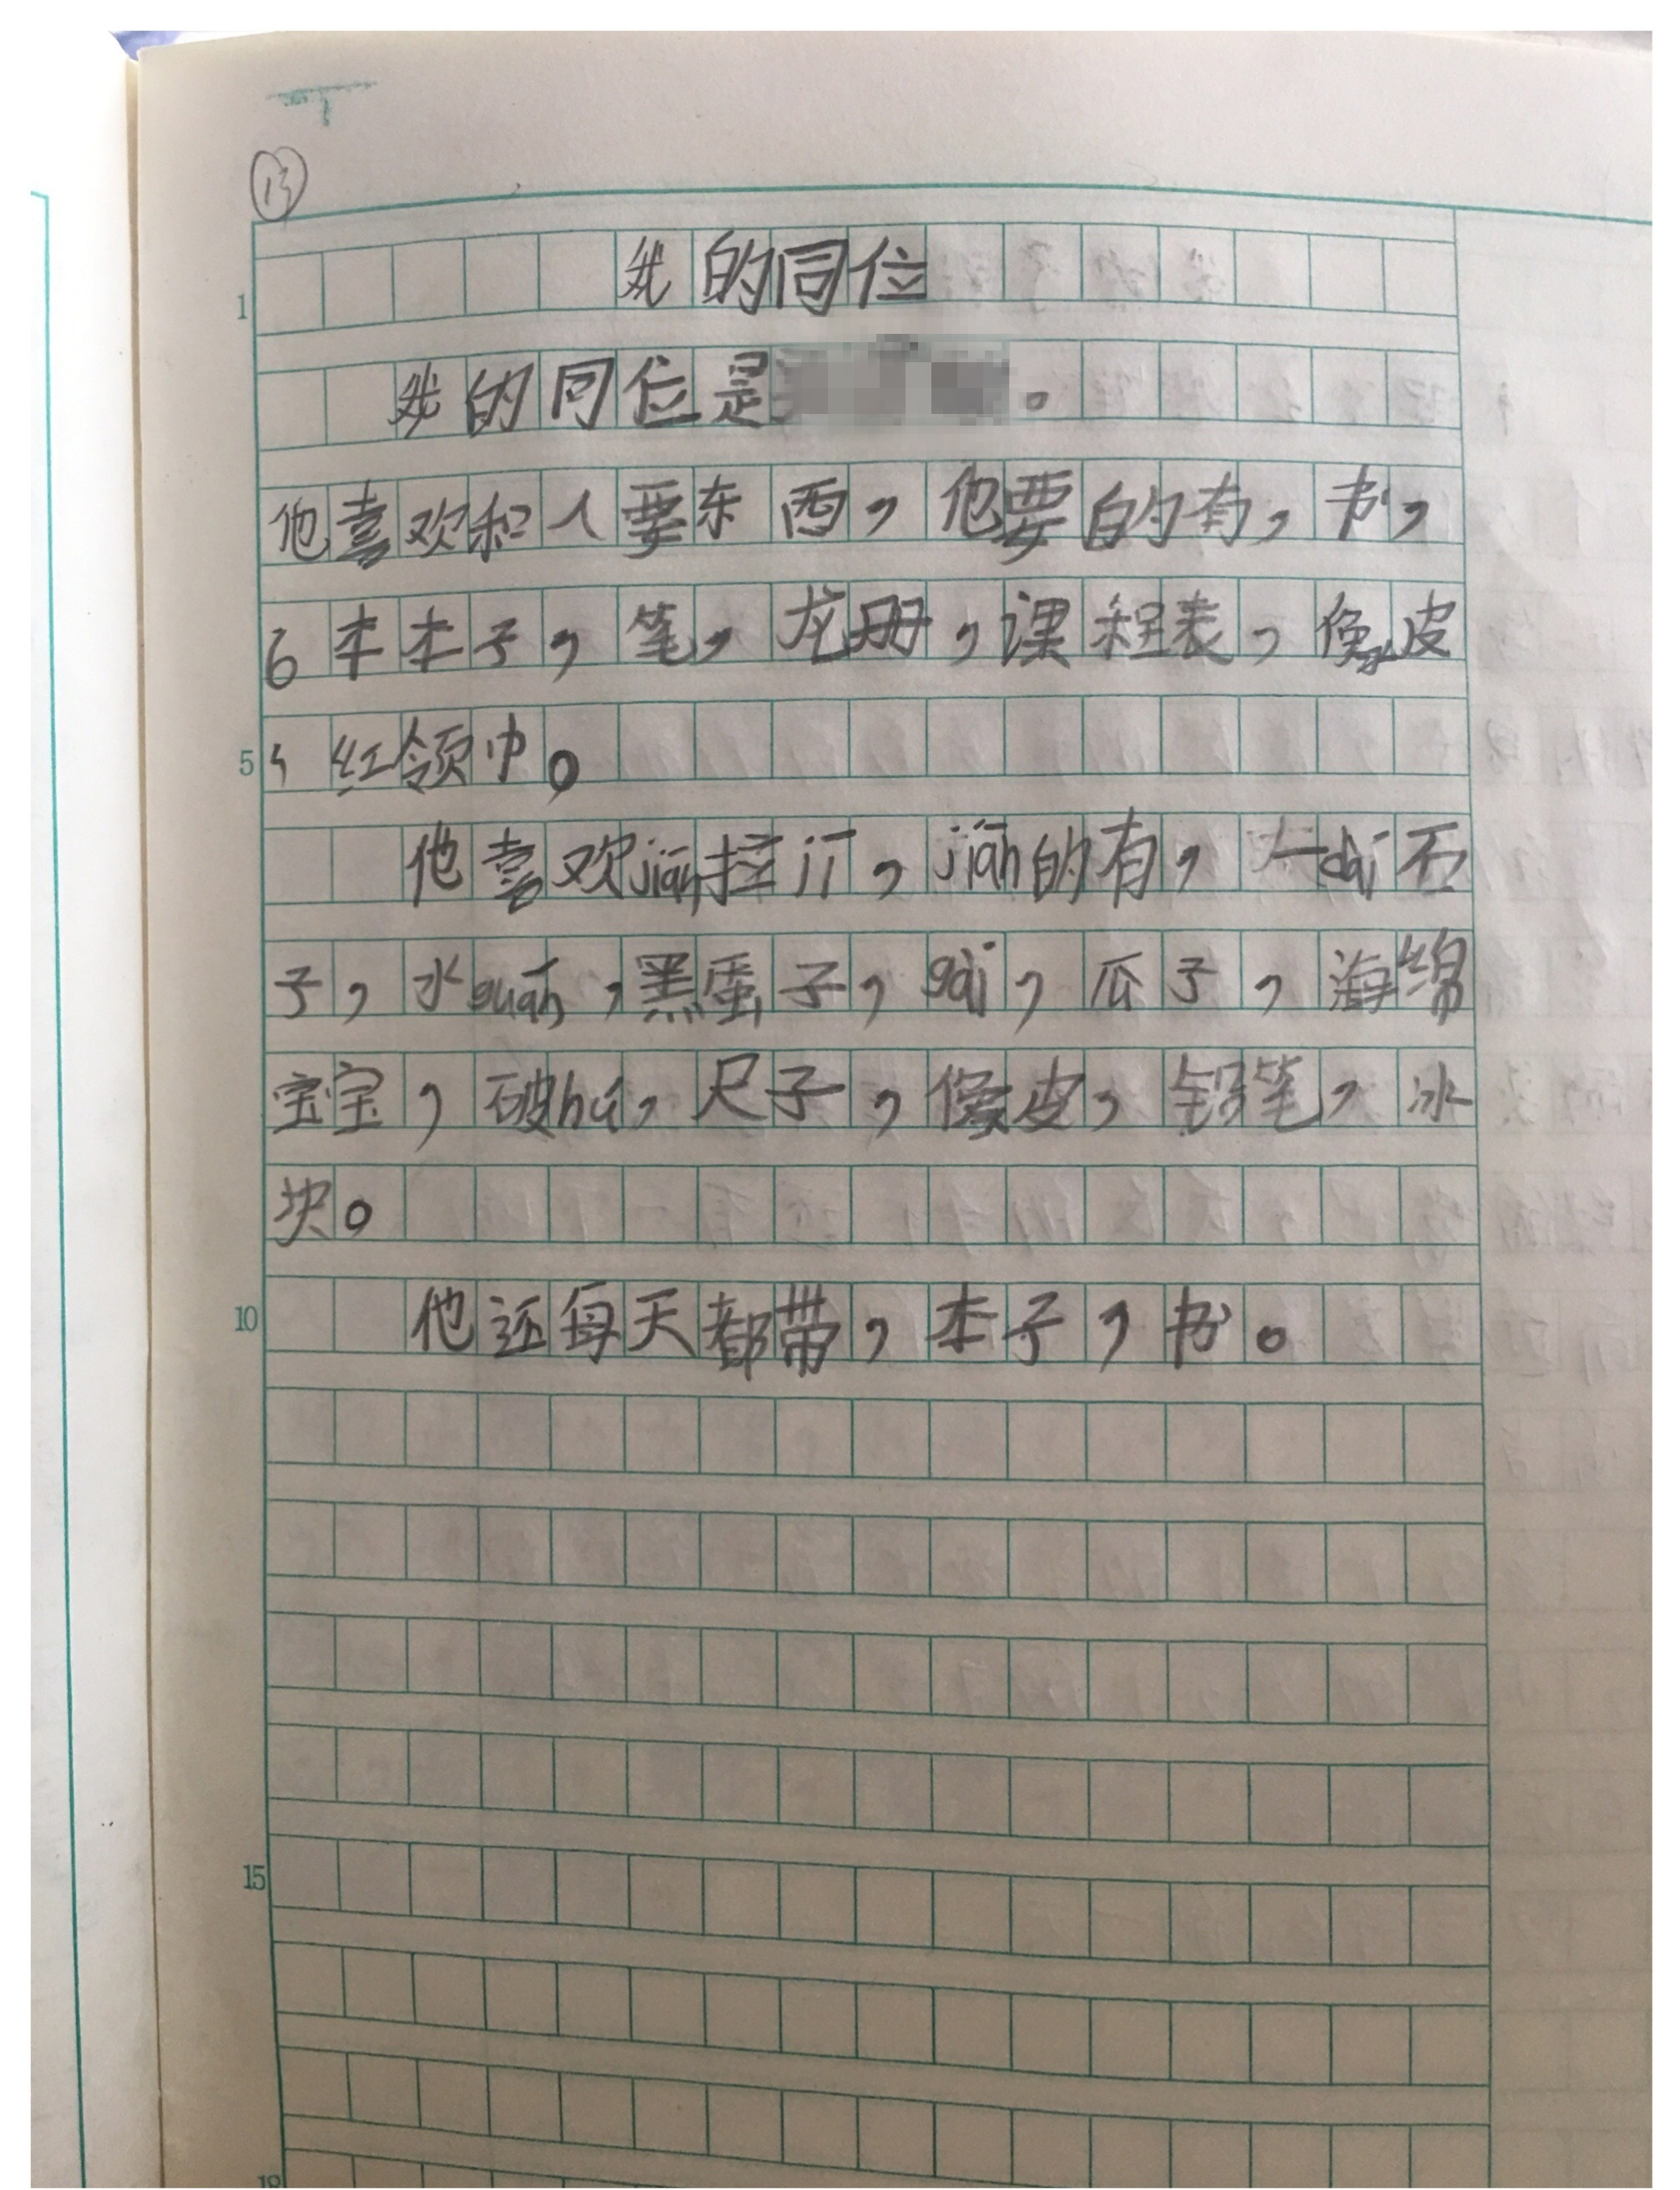 13
我的同位
我的同位是
他喜欢和人要东西，他要的有，书，
6本本子，笔，龙册，课程表，像皮
，红领巾。
他喜欢jiǎn拉jī，jiǎn的有，一dài石
子，水guǎn，黑蛋子，gài，瓜子，海绵
宝宝，破hú，尺子，像皮，铅笔，冰
块。
他还每天都带，本子，书。
1
5
10
15
18